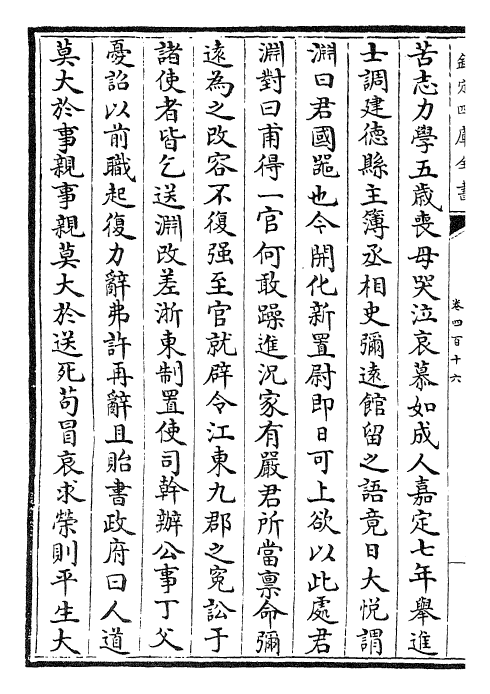 欽定四庫全書
卷四百十六
苦志力學五歲喪母哭泣哀慕如成人嘉定七年舉進
士調建德縣主簿丞相史彌遠館留之語竟日大悅謂
淵曰君國器也今開化新置尉即日可上欲以此處君
淵對曰甫得一官何敢躁進況家有嚴君所當禀命彌
遠為之改容不復强至官就辟令江東九郡之寃訟于
諸使者皆乞送淵改差浙東制置使司幹辦公事丁父
憂詔以前職起復力辭弗許再辭且貽書政府曰人道
莫大於事親事親莫大於送死茍冒哀求榮則平生大